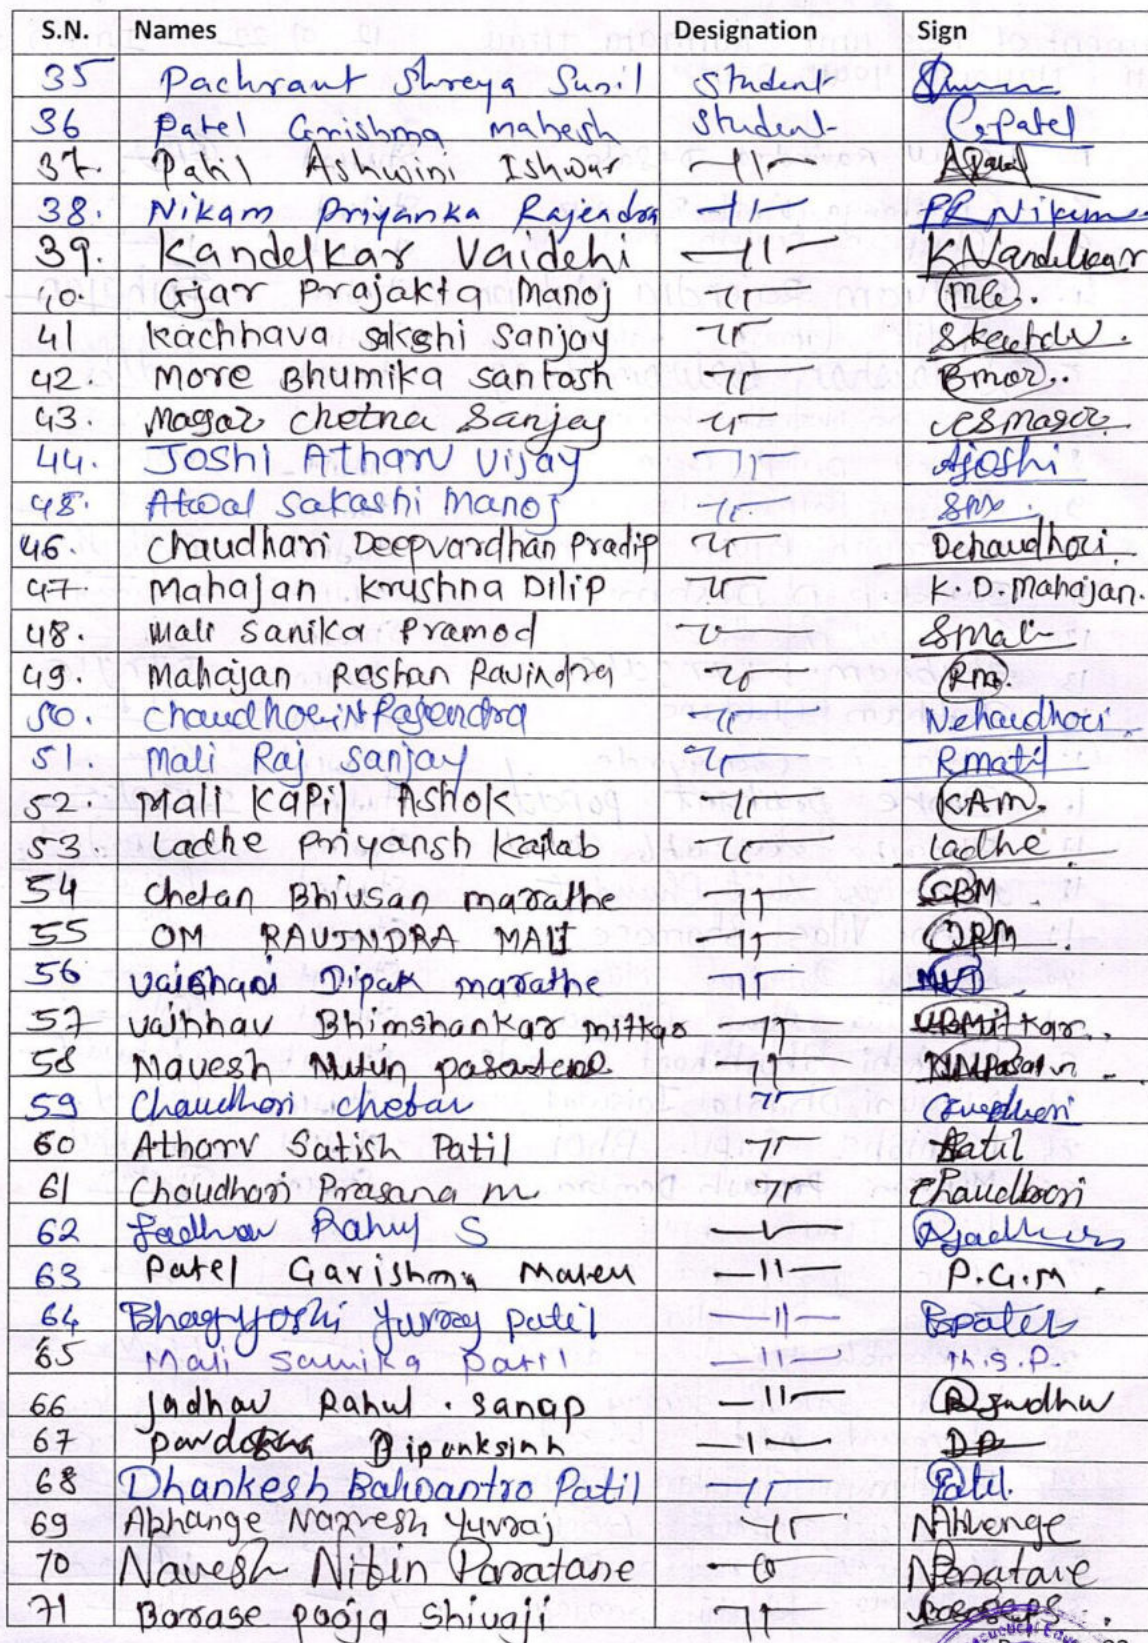 S.N. Names Designation Sign
35 Pachraut Shreya Sunil Student
36 Patel Grishma mahesh Student G.patel
37. Patil Ashwini Ishwar -11- APatil
38. Nikam Priyanka Rajendra -11- PR Nikam
39. Kandelkar Vaidehi -11- KVandelkar
40. Gjar Prajakta Manoj -11-
41 Kachhava sakshi sanjay -11-
42. More Bhumika santosh -11- Bmor..
43. Magar chetna Sanjay -11- csmagar
44. Joshi Atharv vijay -11- AJoshi
45. Atwal Sakashi Manoj -11-
46 Chaudhari Deepvardhan Pradip -11- Dchaudhari
47. Mahajan Krushna Dilip -11- K.D.Mahajan.
48. Mali Sanika Pramod -11- Smali
49. Mahajan Roshan Ravindra -11- Rm.
50. ChaudhariN Rajendra -11- Nchaudhari
51. Mali Raj sanjay -11-
52. Mali Kapil Ashok -11- KAM.
53. Ladhe Priyansh Kailab -11- Ladhe
54 Chetan Bhivsan marathe -11- CBM
55 OM RAVINDRA MALI -11- ORM
56 vaishani Dipak marathe -11-
57 vaibhav Bhimshankar mitkar -11- VBMitkar.
58 Navesh Nitin -11-
59 Chaudhari chetan -11-
60 Atharv Satish Patil -11- Patil
61 Choudhari Prasana m -11- Chaudhari
62 Jadhav Rahul S -11- Rjadhav
63 Patel Garishma -11- P.G.M.
64 Bhagyoshi Yuvraj patil -11-
65 Mali Sanika patil -11- M.S.P.
66 Jadhav Rahul . sanap -11- RJadhav
67 Dipanksinh -11- DP
68 Dhankesh Balwantro Patil -11- Patil.
69 Abhange Narvesh Yuvraj -11-
70 Navesh Nitin Paratane -11- NParatane
71 Barase pooja Shivaji -11-